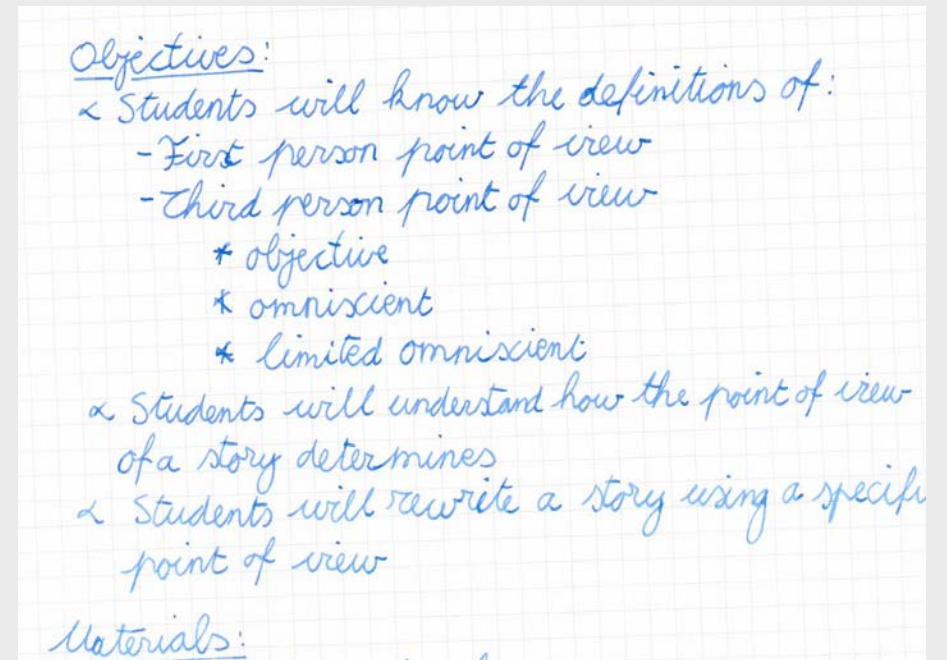 Objectives:
∝ Students will know the definitions of:
- First person point of view
- Third person point of view
* objective
* omniscient
* limited omniscient
∝ Students will understand how the point of view
of a story determines
∝ Students will rewrite a story using a specifi
point of view
Materials: